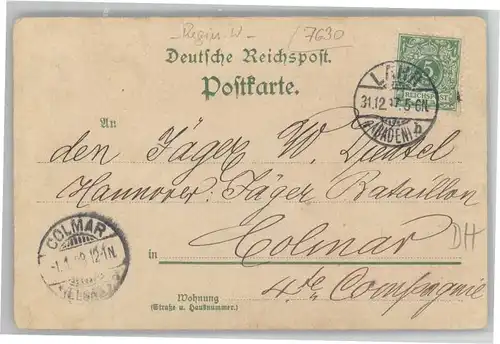 Regin. W. /7630
Deutsche Reichspost.
Postkarte.
5
REICHSPOST
LAHR
31.12. 97. 5-6N.
(BADEN) b
An
den Jäger W. Deussel
Hannover: Jäger Bataillon
in Colmar
DH
4te Compagnie
COLMAR
1.1. 98. 12-1N.
(ELSASS)
Wohnung
(Straße u. Hausnummer.)